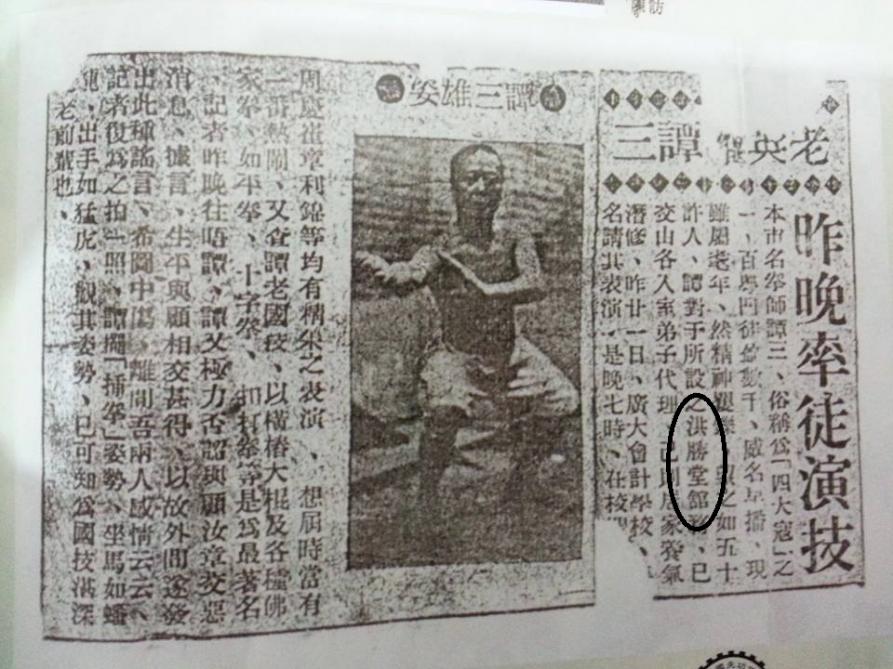 老英雄譚三
昨晚率徒演技
本市名拳師譚三、俗稱爲「四大寇」之
一、百粵門徒數千、威名早播、現
雖屬老年、然精神矍鑠、望之如五十
許人、譚對于所設之洪勝堂館務、已
交由各入室弟子代理、己則居家養氣
潛修、昨廿一日、廣大會計學校、
名請其表演、是晚七時、在校
譚三雄姿
周慶崔章利錦等均有精采之表演、想屆時當有
一番熱鬧、又查譚老國技、以橫樁大棍及各種佛
家拳、如平拳、十字拳、扣打拳等是爲最著名
、記者昨晚往晤譚、譚又極力否認與顧汝章交惡
消息、據言、生平與顧相交甚得、以故外間遂發
出此種謠言、希圖中傷、離間吾兩人感情云云、
記者復爲之拍一照、譚擺「插拳」姿勢、坐馬如蟠
龍、出手如猛虎、觀其姿勢、已可知爲國技湛深
老前輩也、